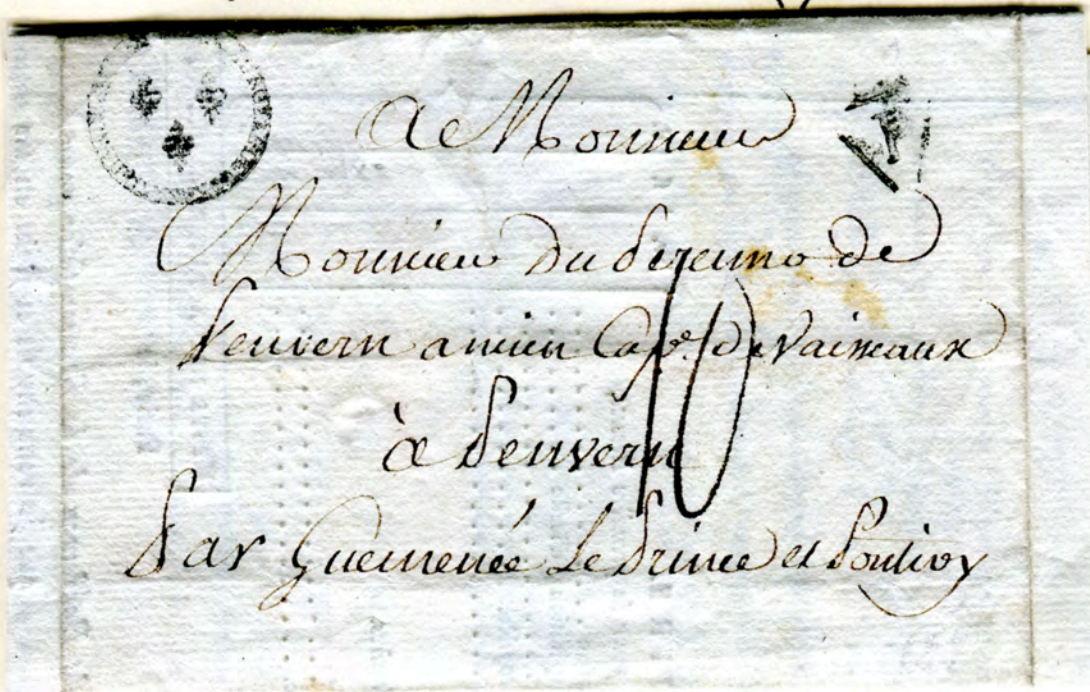 A Monsieur
Monsieur du Perenno de
Penvern ancien Cape. de Vaisseaux
à Penvern
Par Guemenée Le Prince et Pontivy
10